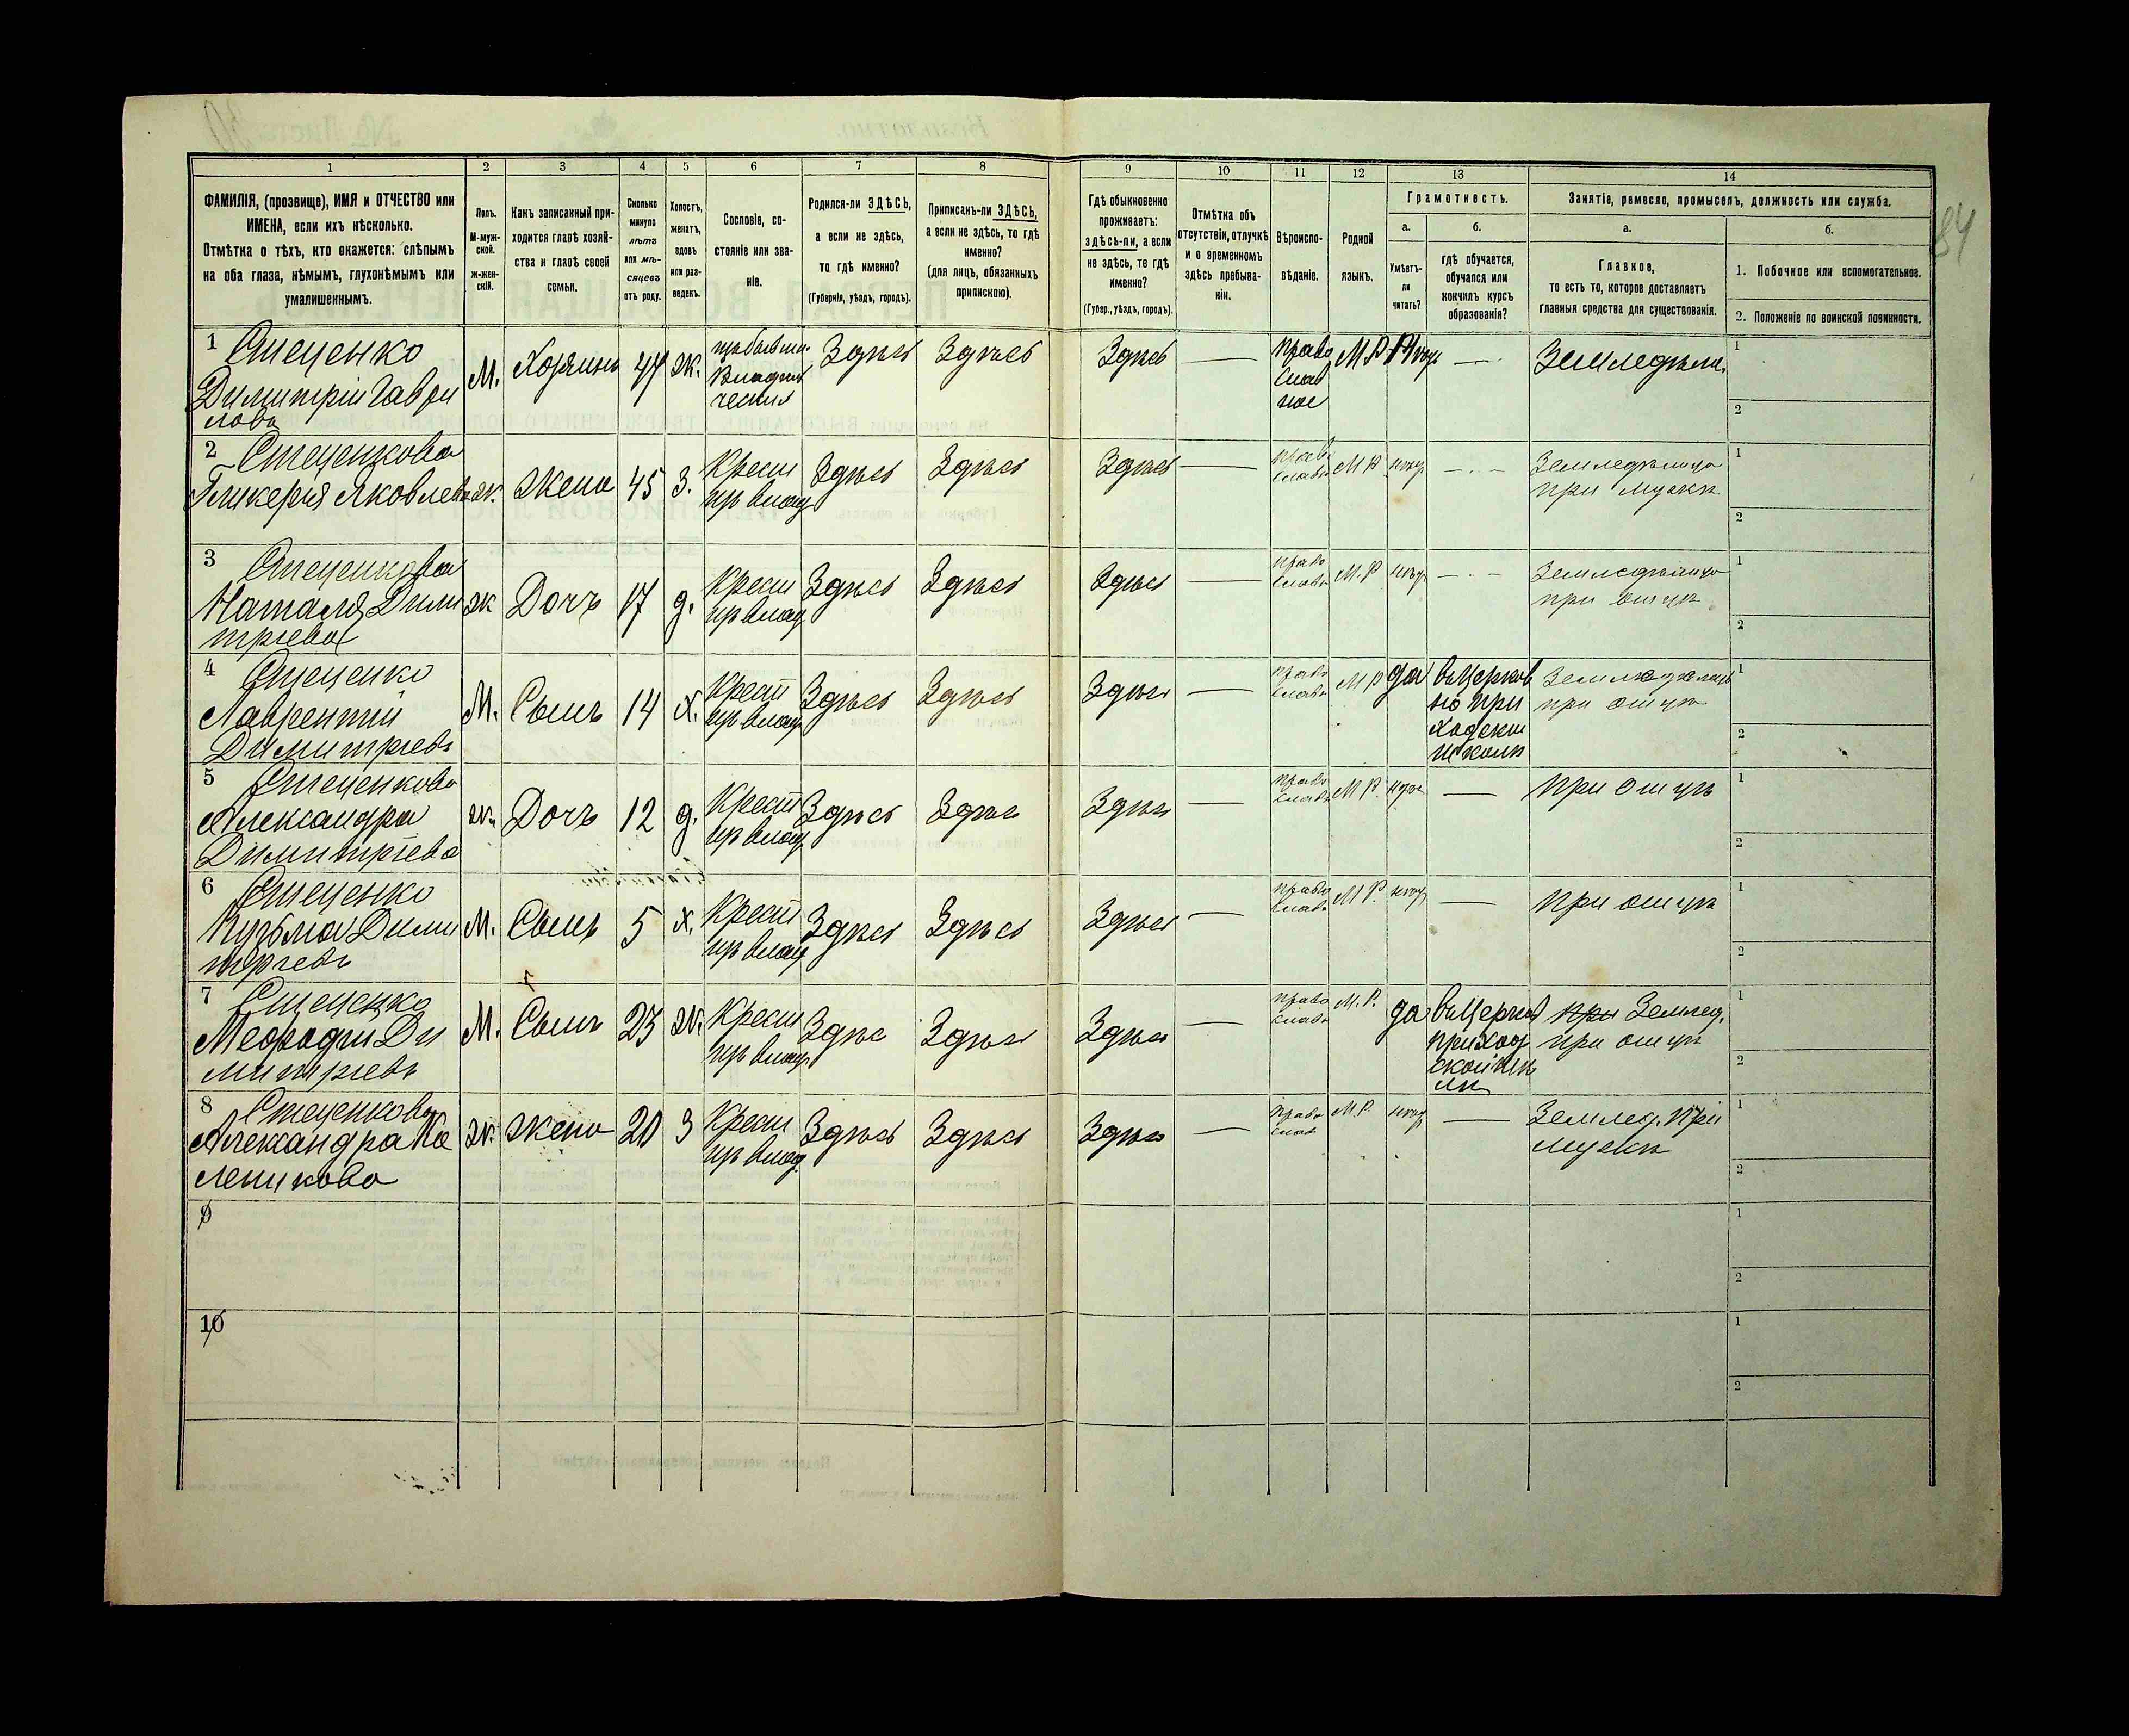 84
1 2 3 4 5 6 7 8 9 10 11 12 13 14
ФАМИЛІЯ, (прозвище), ИМЯ и ОТЧЕСТВО или
ИМЕНА, если ихъ нѣсколько.
Отмѣтка о тѣхъ, кто окажется: слѣпымъ
на оба глаза, нѣмымъ, глухонѣмымъ или
умалишеннымъ.
Полъ.
М-муж-
ской.
ж-жен-
скій.
Какъ записанный при-
ходится главѣ хозяй-
ства и главѣ своей
семьи.
Сколько
минуло
лѣтъ
или мѣ-
сяцевъ
отъ роду.
Холостъ,
женатъ,
вдовъ
или раз-
веденъ.
Сословіе, со-
стояніе или зва-
ніе.
Родился-ли ЗДѢСЬ,
а если не здѣсь,
то гдѣ именно?
(Губернія, уѣздъ, городъ).
Приписанъ-ли ЗДѢСЬ,
а если не здѣсь, то гдѣ
именно?
(для лицъ, обязанныхъ
припискою).
Гдѣ обыкновенно
проживаетъ:
здѣсь-ли, а если
не здѣсь, то гдѣ
именно?
(Губер., уѣздъ, городъ).
Отмѣтка объ
отсутствіи, отлучкѣ
и о временномъ
здѣсь пребыва-
ніи.
Вѣроиспо-
вѣданіе.
Родной
языкъ.
Грамотность.
а.
Умѣетъ-
ли
читать?
б.
гдѣ обучается,
обучался или
кончилъ курсъ
образованія?
Занятіе, ремесло, промыселъ, должность или служба.
а.
Главное,
то есть то, которое доставляетъ
главныя средства для существованія.
б.
1. Побочное или вспомогательное.
2. Положеніе по воинской повинности.
1 Стеценко
Димитрій Гаври
ловъ
М.
Хозяинъ
47
ж.
Здѣсь
Здѣсь
Здѣсь
—
Право
слав
ное
М Р
—
1
2
2 Стеценкова
Гликерія Яковлева
ж.
жена
45
З.
Крест
Здѣсь
Здѣсь
Здѣсь
—
М Р
—
при мужѣ
1
2
3 Стеценкова
Наталія Дими
тріева
ж
Дочь
17
д.
Крест
Здѣсь
Здѣсь
Здѣсь
—
право
славн
М. Р
—
при отцѣ
1
2
4 Стеценко
Лаврентій
Димитріевъ
М.
Сынъ
14
х.
Крест
Здѣсь
Здѣсь
Здѣсь
—
право
славн
М Р
да
въ Церков
но при
ходской
школѣ
при отцѣ
1
2
5 Стеценкова
Александра
Димитріева
ж.
Дочь
12
д.
Крест
Здѣсь
Здѣсь
Здѣсь
—
право
славн
М Р.
—
при отцѣ
1
2
6 Стеценко
Кузьма Дими
тріевъ
М.
Сынъ
5
х.
Крест
Здѣсь
Здѣсь
Здѣсь
—
право
славн
М Р.
—
при отцѣ
1
2
7 Стеценко
Мефодій Ди
митріевъ
М.
Сынъ
23
ж.
Крест
Здѣсь
Здѣсь
Здѣсь
—
право
славн
М. Р.
да
приход
ской
при Землед.
при отцѣ
1
2
8 Стеценкова
Александра
ж.
жена
20
З
Крест
Здѣсь
Здѣсь
Здѣсь
—
право
слав
М. Р.
—
Землед. При
мужѣ
1
2
9
1
2
10
1
2